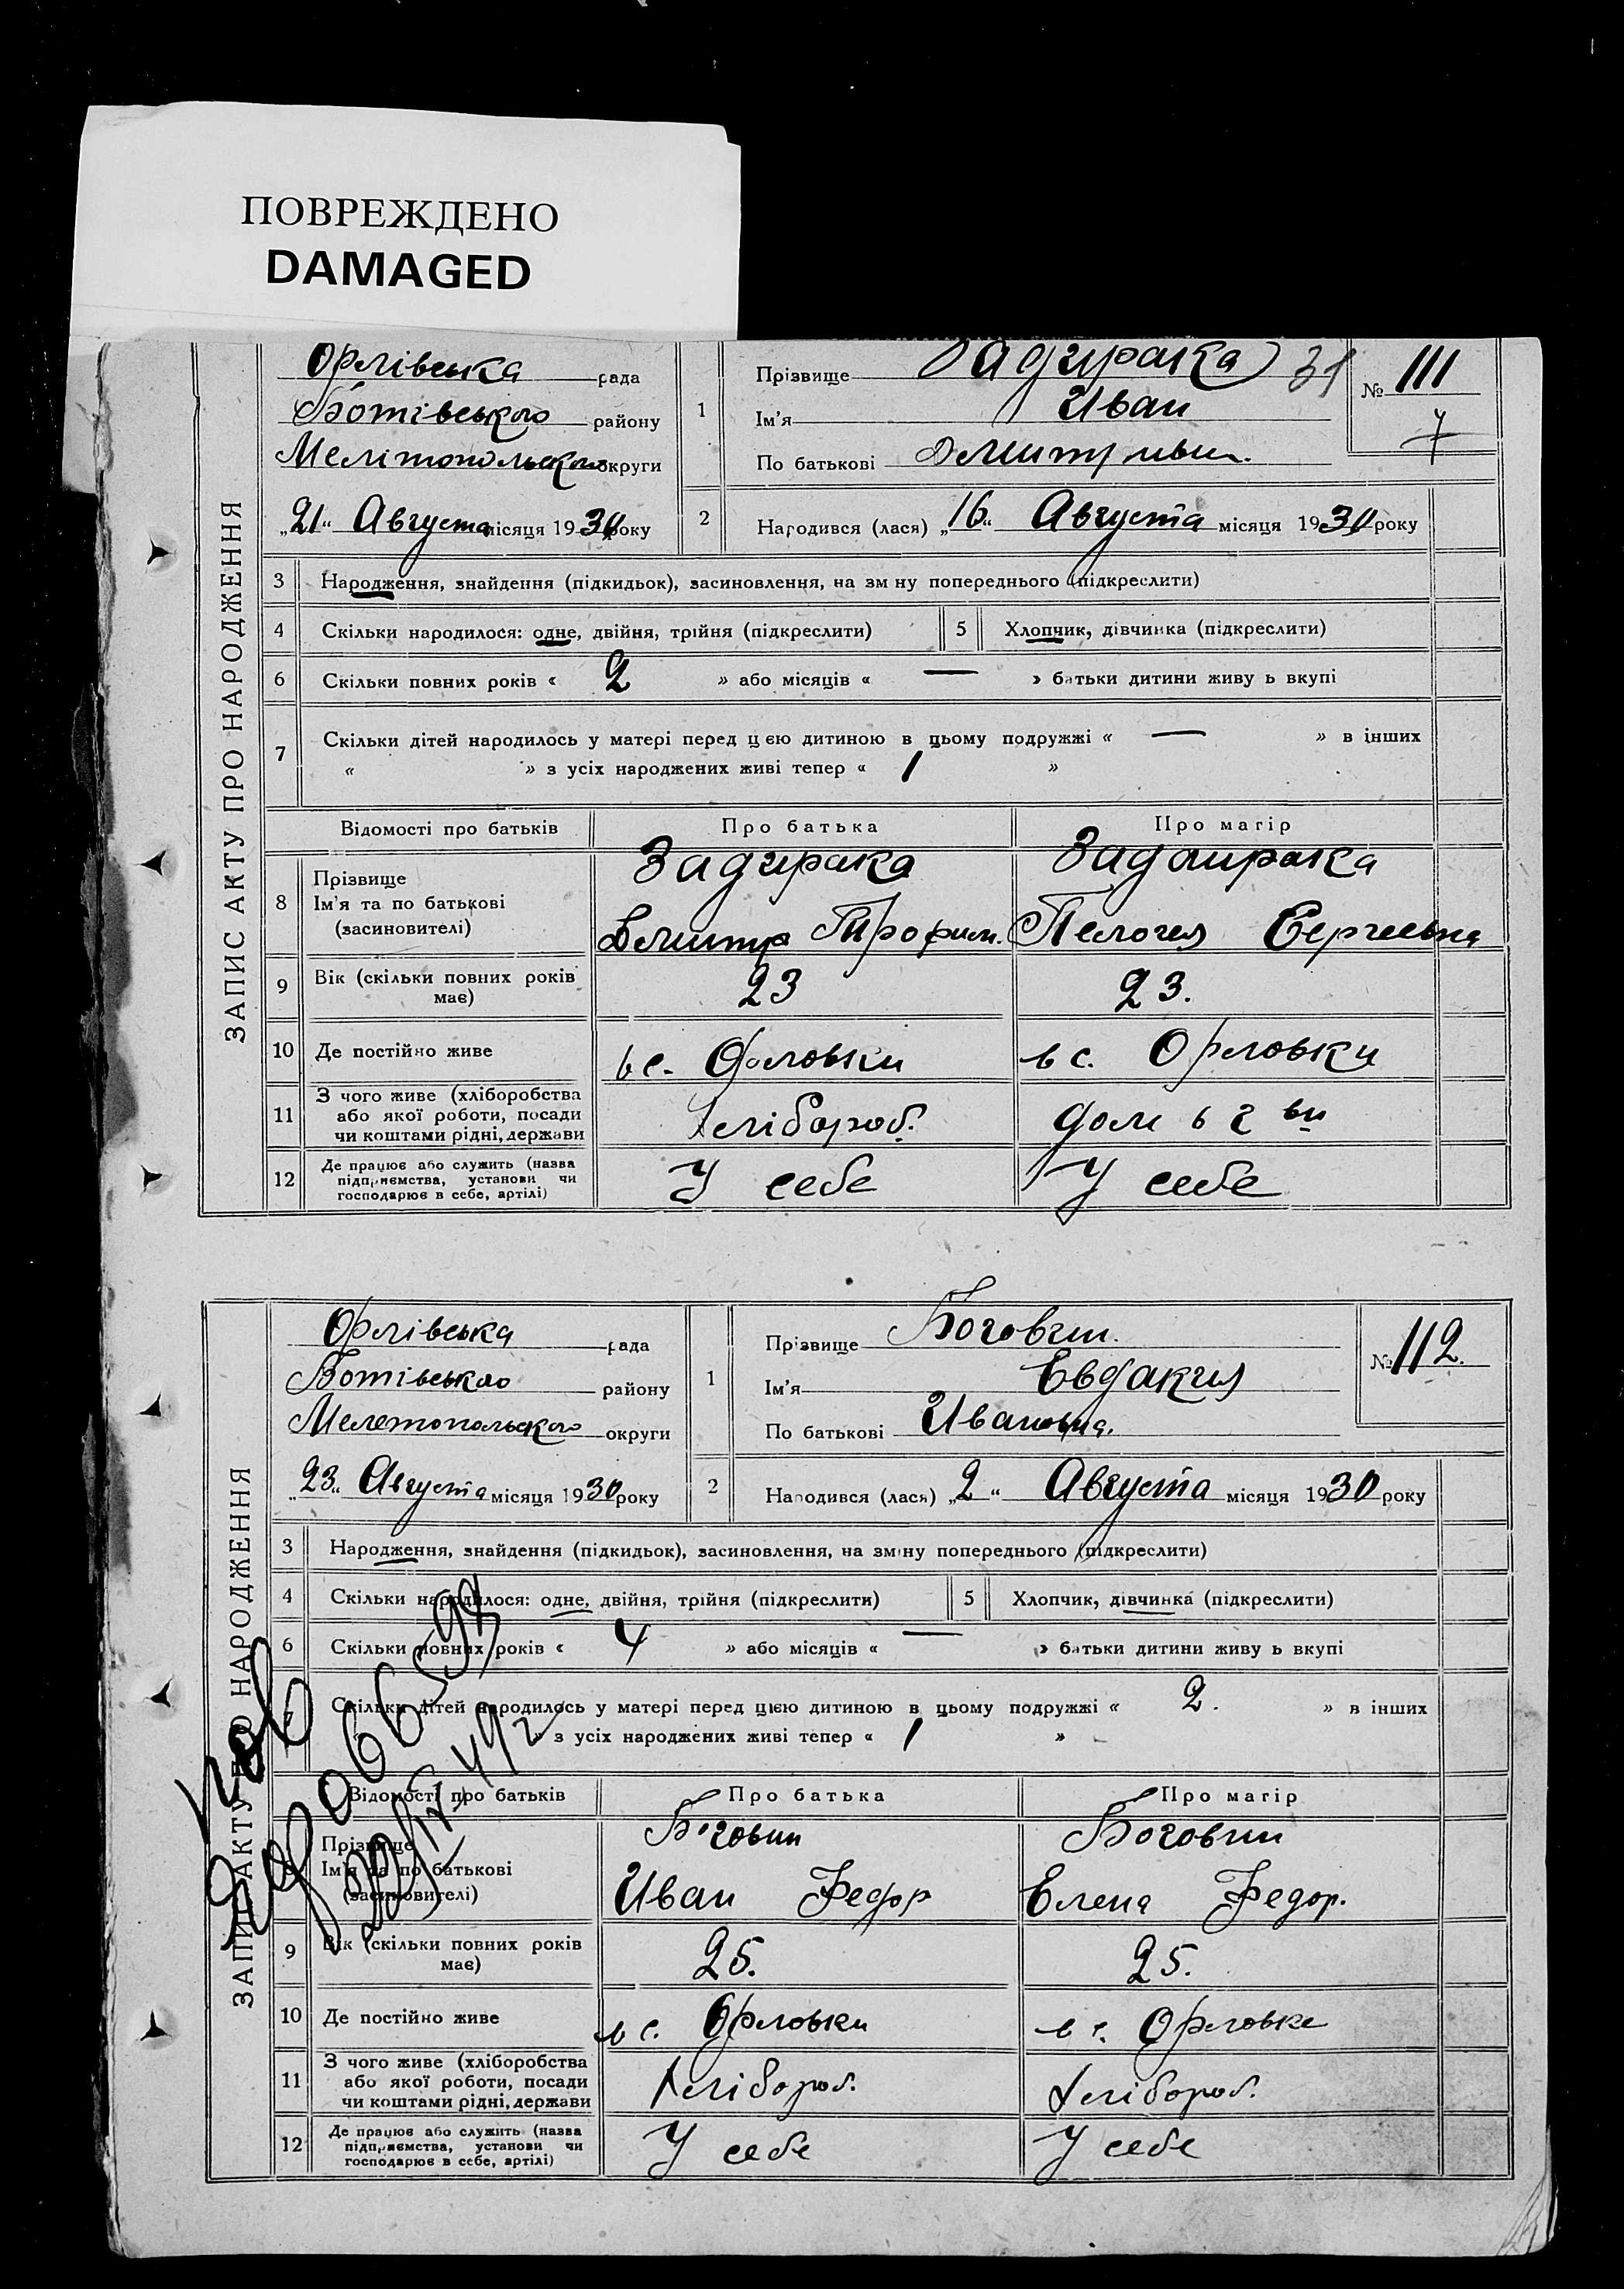 ПОВРЕЖДЕНО
DAMAGED
ЗАПИС АКТУ ПРО НАРОДЖЕННЯ
Орлівська рада
Ботівського району
Мелітопольского округи
„21“ Августа місяця 1930 року
1 Прізвище Задирака 31
Ім'я Иван
По батькові
№ 111
2 Народився (лася) „16“ Августа місяця 1930 року
3 Народження, знайдення (підкидьок), засиновлення, на зм ну попереднього (підкреслити)
4 Скільки народилося: одне, двійня, трійня (підкреслити)
5 Хлопчик, дівчинка (підкреслити)
6 Скільки повних років « 2 » або місяців « — » батьки дитини живу ь вкупі
7 Скільки дітей народилось у матері перед цією дитиною в цьому подружжі « — » в інших
« » з усіх народжених живі тепер « 1 »
Відомості про батьків Про батька Про матір
8 Прізвище Ім'я та по батькові (засиновителі)
Задирака Задирака
Дмитр Трофим. Пелогея Сергеевна
9 Вік (скільки повних років має) 23 23.
10 Де постійно живе в с. Орловки в с. Орловки
11 З чого живе (хліборобства
або якої роботи, посади
чи коштами рідні, держави
Хлібороб. дом в г ви
12 Де працює або служить (назва
підприємства, установи чи
господарює в себе, артілі)
У себе У себе
ЗАПИС АКТУ ПРО НАРОДЖЕННЯ
Орлівська рада
Ботівського району
Мелетопольского округи
„23“ Августа місяця 1930 року
1 Прізвище Боговин.
Ім'я Евдакия
По батькові Ивановна.
№ 112.
2 Народився (лася) „2“ Августа місяця 1930 року
3 Народження, знайдення (підкидьок), засиновлення, на зміну попереднього (підкреслити)
4 Скільки народилося: одне, двійня, трійня (підкреслити)
5 Хлопчик, дівчинка (підкреслити)
6 Скільки повних років « 4 » або місяців « — » батьки дитини живу ь вкупі
7 Скільки дітей народилось у матері перед цією дитиною в цьому подружжі « 2. » в інших
» з усіх народжених живі тепер « 1 »
Відомості про батьків Про батька Про матір
8 Прізвище
Ім'я та по батькові
(засиновителі)
Боговин Боговин
Иван Федор Елена Федор.
9 Вік (скільки повних років має) 25. 25.
10 Де постійно живе в с. Орловки в с. Орловке
11 З чого живе (хліборобства
або якої роботи, посади
чи коштами рідні, держави
Хлібороб. Хлібороб.
12 Де працює або служить (назва
підприємства, установи чи
господарює в себе, артілі)
У себе У себе